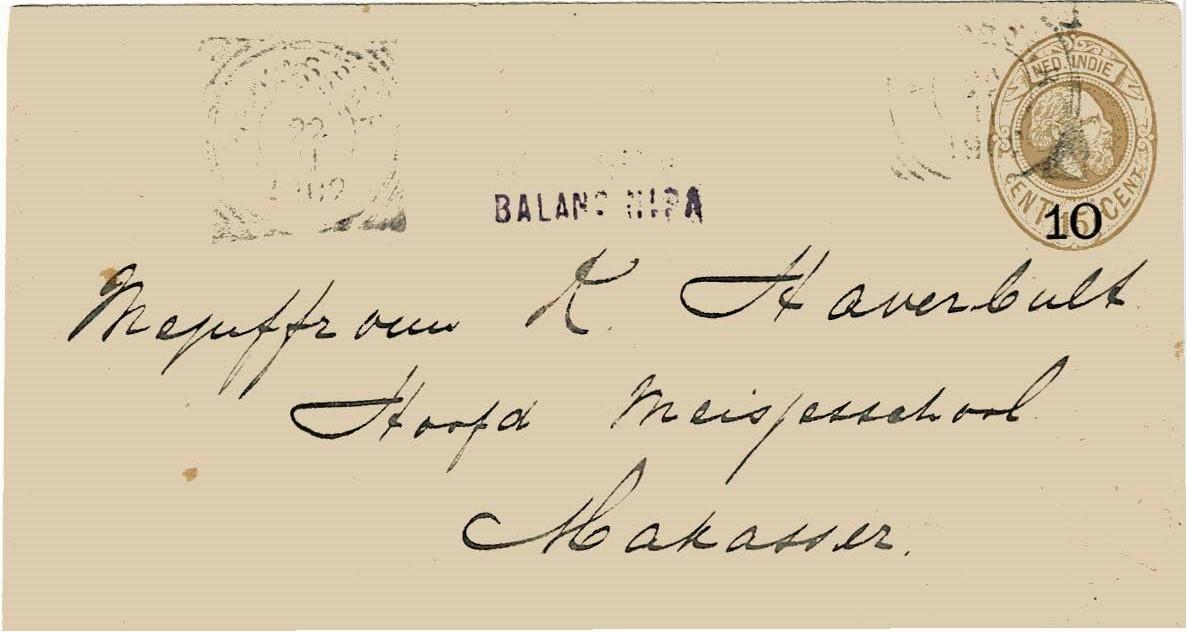 NED. INDIE
CENT 15 CENT
10
22
BALANG NIPA
Mejuffrouw K. Haverbult
Hoofd Meisjesschool
Makasser.